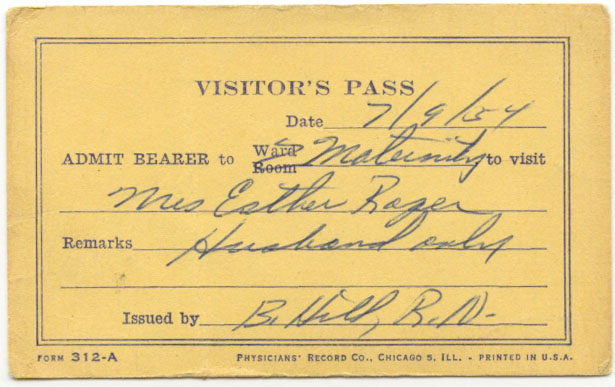 VISITOR'S PASS
Date 7/9/54
ADMIT BEARER to Ward Room Maternity to visit
Mrs Esther Razer
Remarks Husband only
Issued by B. Hill, R.N.
FORM 312-A PHYSICIANS' RECORD CO., CHICAGO 5, ILL. - PRINTED IN U.S.A.